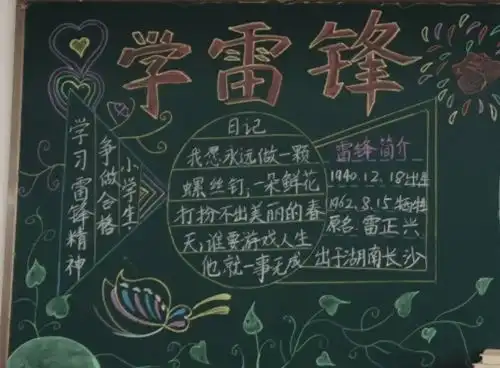 学雷锋
学习雷锋精神
争做合格
小学生
日记
我愿永远做一颗
螺丝钉,一朵鲜花
打扮不出美丽的春
天,谁要游戏人生
他就一事无成
雷锋简介
1940.12.18出生
1962.8.15牺牲
原名:雷正兴
出于湖南长沙